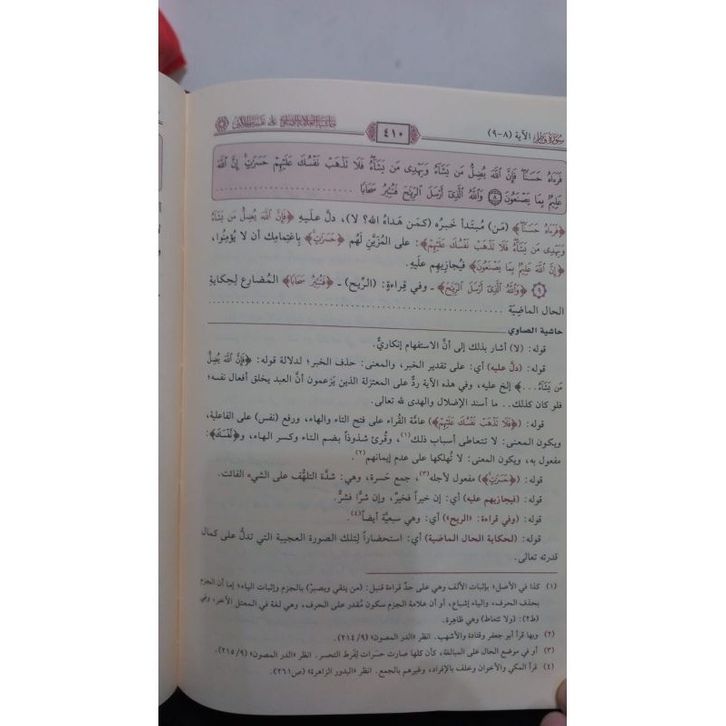 سُورَةُ فَاطِر الآية (٨-٩)
٤١٠
حاشية العلامة الصاوي على تفسير الجلالين
فَرَءَاهُ حَسَنًا ۖ فَإِنَّ ٱللَّهَ يُضِلُّ مَن يَشَآءُ وَيَهْدِى مَن يَشَآءُ ۖ فَلَا تَذْهَبْ نَفْسُكَ عَلَيْهِمْ حَسَرَٰتٍ ۚ إِنَّ ٱللَّهَ
عَلِيمٌۢ بِمَا يَصْنَعُونَ ٨ وَٱللَّهُ ٱلَّذِىٓ أَرْسَلَ ٱلرِّيَٰحَ فَتُثِيرُ سَحَابًا
﴿فَرَءَاهُ حَسَنًا﴾ (مَن) مُبتدأ خبرُه (كمَن هَداهُ الله؟ لا)، دلَّ عليهِ ﴿فَإِنَّ ٱللَّهَ يُضِلُّ مَن يَشَآءُ
وَيَهْدِى مَن يَشَآءُ فَلَا تَذْهَبْ نَفْسُكَ عَلَيْهِمْ﴾: على المُزَيَّنِ لَهُم ﴿حَسَرَٰتٍ﴾ بِاغتِمامِك أن لا يُؤمِنُوا،
﴿إِنَّ ٱللَّهَ عَلِيمٌ بِمَا يَصْنَعُونَ﴾ فيُجازِيهم علَيهِ.
٩ ﴿وَٱللَّهُ ٱلَّذِىٓ أَرْسَلَ ٱلرِّيَٰحَ﴾ ـ وفي قِراءةٍ: (الرِّيح) ـ ﴿فَتُثِيرُ سَحَابًا﴾ المُضارع لِحِكايةِ
الحال الماضِيَة
حاشية الصاوي
قوله: (لا) أشار بذلك إلى أنَّ الاستفهام إنكاريٌّ.
قوله: (دلَّ عليه) أي: على تقدير الخبر، والمعنى: حذف الخبر؛ لدلالة قوله: ﴿فَإِنَّ ٱللَّهَ يُضِلُّ
مَن يَشَآءُ...﴾ إلخ عليه، وفي هذه الآية ردٌّ على المعتزلة الذين يَزعمون أنَّ العبد يخلق أفعال نفسه؛
فلو كان كذلك.. ما أسند الإضلال والهدى لله تعالى.
قوله: (﴿فَلَا تَذْهَبْ نَفْسُكَ عَلَيْهِمْ﴾) عامَّة القُراء على فتح التاء والهاء، ورفع (نفس) على الفاعلية،
ويكون المعنى: لا تتعاطى أسباب ذلك(١)، وقُرئ شذوذاً بضم التاء وكسر الهاء، و﴿نَفْسَكَ﴾:
مفعول به، ويكون المعنى: لا تُهلكها على عدم إيمانهم(٢).
قوله: (﴿حَسَرَٰتٍ﴾) مفعول لأجله(٣)، جمع حَسرة، وهي: شدَّة التلهُّف على الشيء الفائت.
قوله: (فيجازيهم عليه) أي: إن خيراً فخيرٌ، وإن شرًّا فشرٌّ.
قوله: (وفي قراءة: «الريح») أي: وهي سبعيَّة أيضاً(٤).
قوله: (لحكاية الحال الماضية) أي: استحضاراً لِتلك الصورة العجيبة التي تدلُّ على كمال
قدرته تعالى.
(١) كذا في الأصل؛ بإثبات الألف وهي على حدِّ قراءة قنبل: (من يتقي ويصبرْ) بالجزم وإثبات الياء؛ إما أن الجزم
بحذف الحرف، والياء إشباع، أو أن علامة الجزم سكون مُقدر على الحرف، وهي لغة في المعتل الآخر، وفي
(ط٢): (ولا تتعاط) وهي ظاهرة.
(٢) وبها قرأ أبو جعفر وقتادة والأشهب. انظر «الدر المصون» (٢١٤/٩).
(٣) أو في موضع الحال على المبالغة، كأن كلها صارت حسرات لِفرط التحسر. انظر «الدر المصون» (٢١٥/٩).
(٤) قرأ المكي والأخوان وخلف بالإفراد، وغيرهم بالجمع. انظر «البدور الزاهرة» (ص٢٦١).